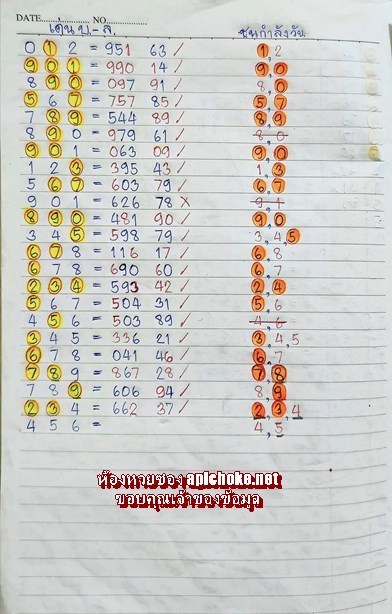 DATE.................NO...............
เด่น บ.-ล. ชนกำลังวัน
0 1 2 = 951 63 / 1,2
9 0 1 = 990 14 / 9,0
8 9 0 = 097 91 / 8,0
5 6 7 = 757 85 / 5,7
7 8 9 = 544 89 / 8,9
8 9 0 = 979 61 / 8,0
9 0 1 = 063 09 / 9,0
1 2 3 = 395 43 / 1,3
5 6 7 = 603 79 / 6,7
9 0 1 = 626 78 x 9,1
8 9 0 = 481 90 / 9,0
3 4 5 = 598 79 / 3,4,5
6 7 8 = 116 17 / 6,8
6 7 8 = 690 60 / 6,7
2 3 4 = 593 42 / 2,4
5 6 7 = 504 31 / 5,6
4 5 6 = 503 89 / 4,6
3 4 5 = 336 21 / 3,4,5
6 7 8 = 041 46 / 6,7
7 8 9 = 867 28 / 7,8
7 8 9 = 606 94 / 8,9
2 3 4 = 662 37 / 2,3,4
4 5 6 = 4,5
ห้องหวยซอง apichoke.net
ขอบคุณเจ้าของข้อมูล